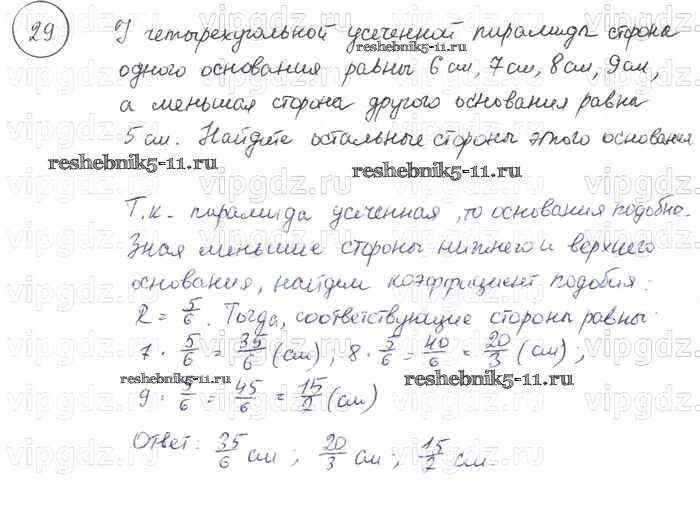 29
У четырехугольной усеченной пирамиды сторона
одного основания равны 6 см, 7 см, 8 см, 9 см,
а меньшая сторона другого основания равна
5 см. Найдите остальные стороны этого основания
Т.к. пирамида усеченная, то основания подобны.
Зная меньшие стороны нижнего и верхнего
основания, найдем коэффициент подобия:
k = 5/6. Тогда, соответствующие стороны равны:
7 · 5/6 = 35/6 (см); 8 · 5/6 = 40/6 = 20/3 (см);
9 · 5/6 = 45/6 = 15/2 (см)
Ответ: 35/6 см; 20/3 см; 15/2 см.
reshebnik5-11.ru
reshebnik5-11.ru
reshebnik5-11.ru
reshebnik5-11.ru
reshebnik5-11.ru
vipgdz.ru